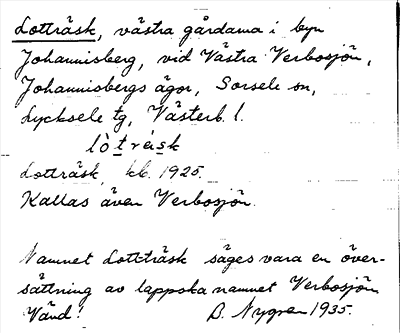 Lotträsk, västra gårdarna i byn
Johannisberg, vid Västra Verbosjön,
Johannisbergs ägor, Sorsele sn,
Lycksele tg, Västerb. l.
lòtrèsk
Lotträsk, kb. 1925.
Kallas även Verbosjön.
Namnet Lottträsk säges vara en över-
sättning av lappska namnet Verbosjön
Vänd!
B. Nygren 1935.